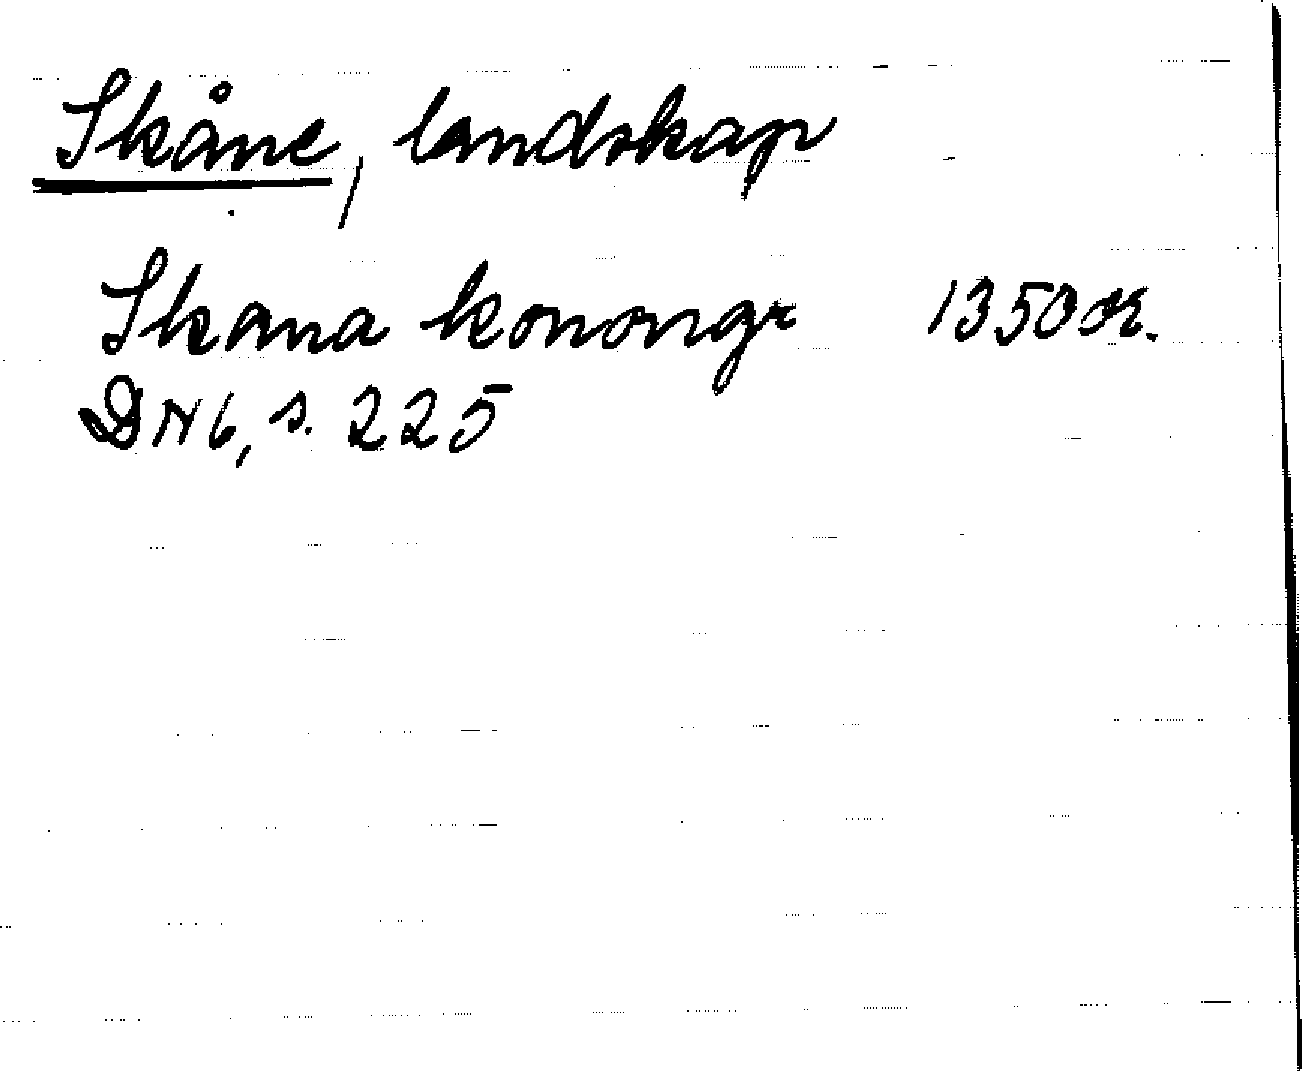 Skåne, landskap
Skana konongr 1350 or.
DN 6, s. 225